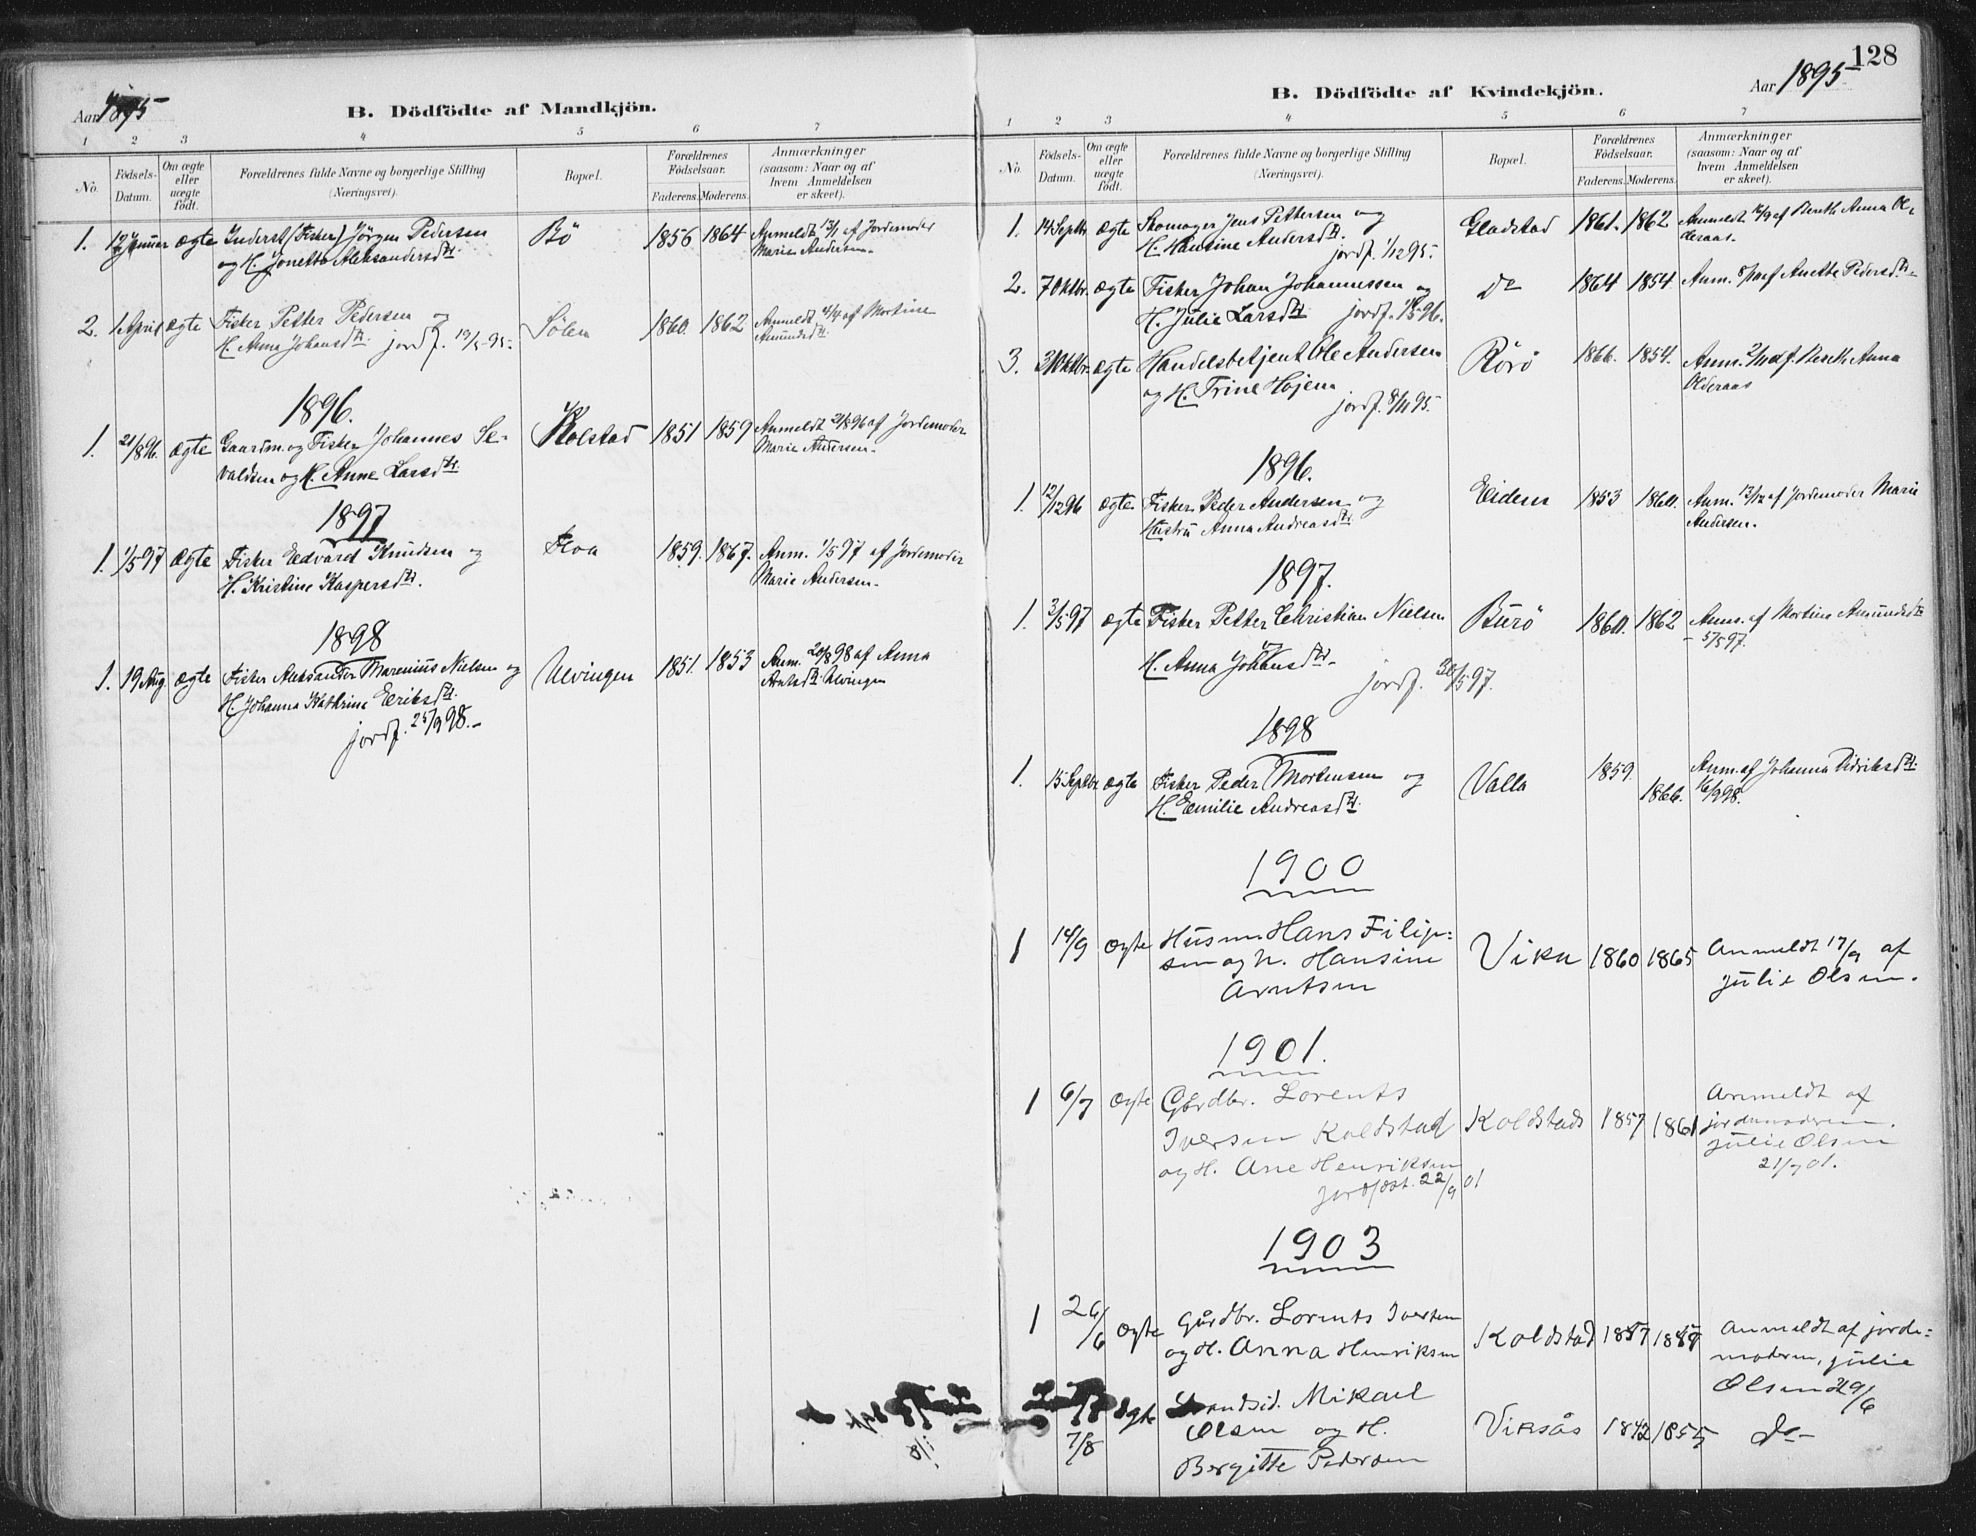 Aar 1895
B. Dödfödte af Mandkjön.
1 2 3 4 5 6 7
No.
Födsels-Datum.
Om ægte eller uægte födt.
Forældrenes fulde Navne og borgerlige Stilling (Næringsvei).
Bopæl.
Forældrenes Födselsaar.
Faderens. Moderens.
Anmærkninger (saasom: Naar og af hvem Anmeldelsen er skeet).
1. 12 Januar ægte Inderst (Fisker) Jörgen Pedersen Bö 1856 1864 Anmeldt 13/1 af Jordemoder
og H. Jonetta Aleksandersdtr. Marie Andersen.
2. 1 April ægte Fisker Petter Pedersen og Sölen 1860. 1862 Anmeldt af Mortine
H. Anna Johansdtr. jordf. 19/5 95. Amundsdtr.
1896.
1. 21/8 96. ægte Gaardm. og Fisker Johannes Se- Kolstad 1851 1859 Anmeldt 21/8 96 af Jordemoder
valdsen og H. Anne Larsdtr. Marie Andersen.
1897
1. 1/5 97 ægte Fisker Edvard Knudsen og Floa 1859. 1867. Anm. 1/5 97 af Jordemoder
H. Kristine Kaspersdtr. Marie Andersen.
1898
1. 19 Aug. ægte Fisker Aleksander Marenius Nielsen og Ulvingen 1851. 1853 Anm. 20/8 98 af Anna
H. Johanna Kathrine Eriksdtr. Arntsdtr. Ulvingen
jordf. 25/9 98.
128
Aar 1895
B. Dödfödte af Kvindekjön.
1 2 3 4 5 6 7
No.
Födsels-Datum.
Om ægte eller uægte födt.
Forældrenes fulde Navne og borgerlige Stilling (Næringsvei).
Bopæl.
Forældrenes Födselsaar.
Faderens. Moderens.
Anmærkninger (saasom: Naar og af hvem Anmeldelsen er skeet).
1. 14 Septbr. ægte Skomager Jens Pettersen og Gladstad 1861. 1862 Anmeldt af Bereth Anna Ol-
H. Hansine Andersdtr. jordf. 1/12 95. deraas.
2. 7 Oktbr. ægte Fisker Johan Johannessen og do 1864 1854. Anm. 8/10 af Anette Pedersdtr.
H. Julie Larsdtr. jordf. 96.
3. Oktbr. ægte Handelsbetjent Ole Andersen Rörö 1866. 1854. Anm. af Bereth Anna
og H. Trine Höjem Olderaas
jordf. 8/11 95.
1896.
1. 12/12 96 ægte Fisker Peder Andersen og Eidem 1853 1860. Anm. 13/12 af Jordemoder Marie
Hustru Anna Andreasdtr. Andersen.
1897.
1. 3/5 97 ægte Fisker Petter Christian Nielsen Burö 1860. 1862 Anm. af Mortine Amundsdtr.
og 5/5 97.
H. Anna Johansdtr.
jordf. 30/5 97.
1898
1. 15 Septbr. ægte Fisker Peder Mortensen og Valla 1859. 1866. Anm. af Johanna Didriksdtr.
H. Emilie Andreasdtr. 16/9 98.
1900
1 14/9 ægte Husm. Hans Filip- Vika 1860 1865 Anmeldt 17/9 af
sen og h. Hansine Julie Olsen.
Arntsen
1901.
1 6/7 ægte Gårdbr. Lorents Anmeldt af
Iversen Koldstad Koldstad 1857 1861 jordemoderen.
og H. Ane Henriksen Julie Olsen
jordfæst. 22/9 01 21/7 01.
1903
1 26/6 ægte Gårdbr. Lorents Iversen Koldstad 1857 Anmeldt af jorde-
og H. Anna Henriksen moderen, Julie
Olsen 29/6
7/8 ægte Strandsid. Mikael
Olsen og H. Viksås 1842 1855 do
Bergitte Pedersen